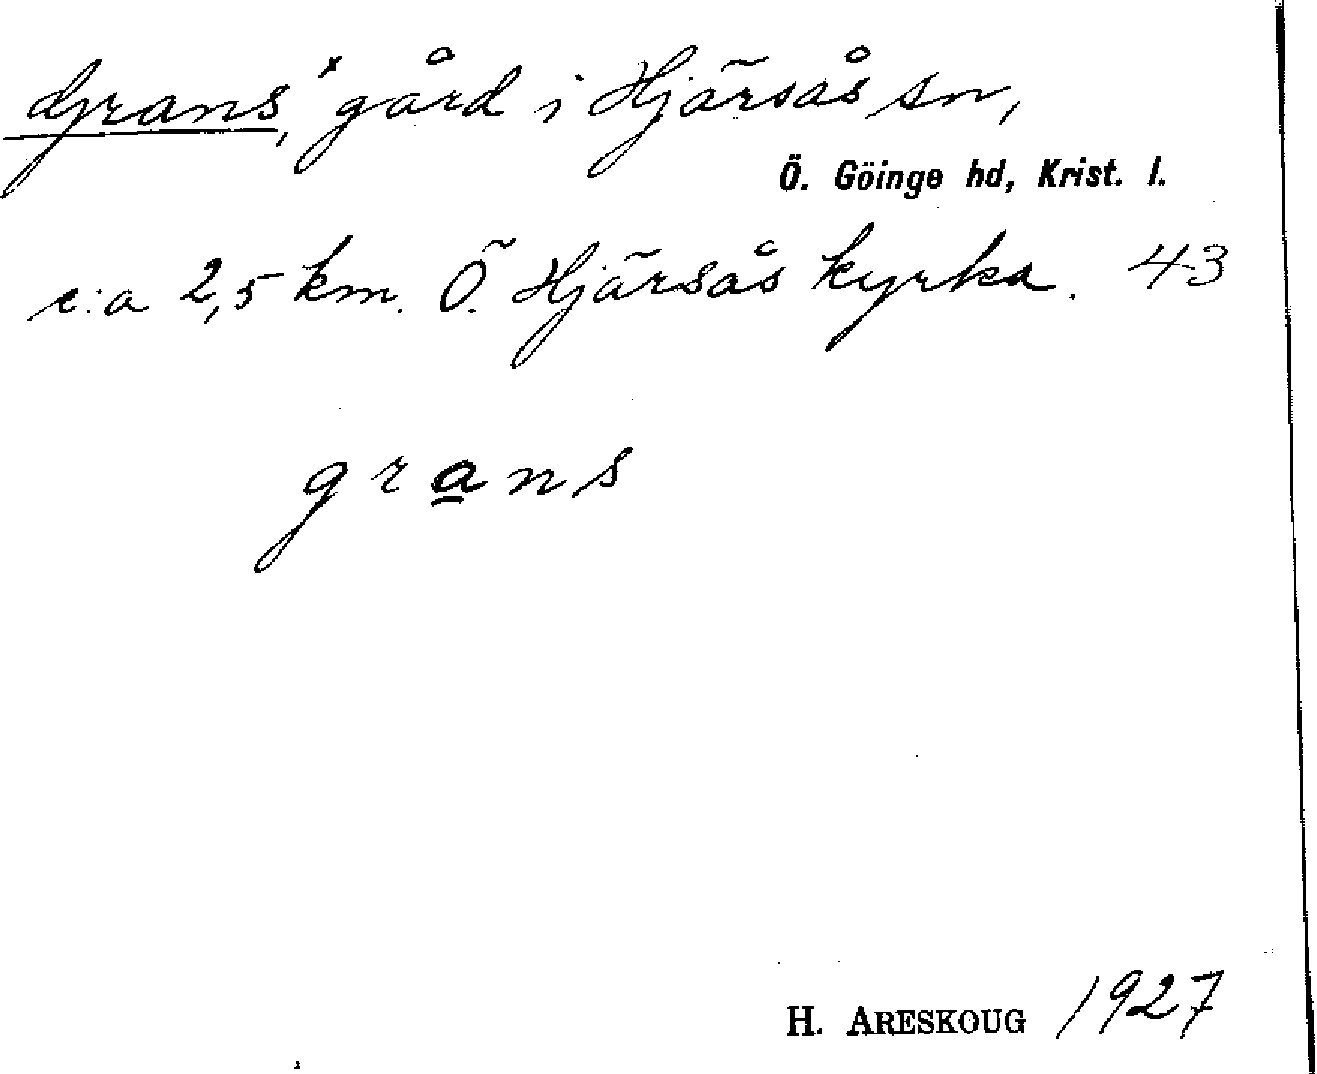 Grans,ˣ gård i Hjärsås sn,
Ö. Göinge hd, Krist. l.
c:a 2,5 km. Ö. Hjärsås kyrka. 43
grans
H. ARESKOUG 1927